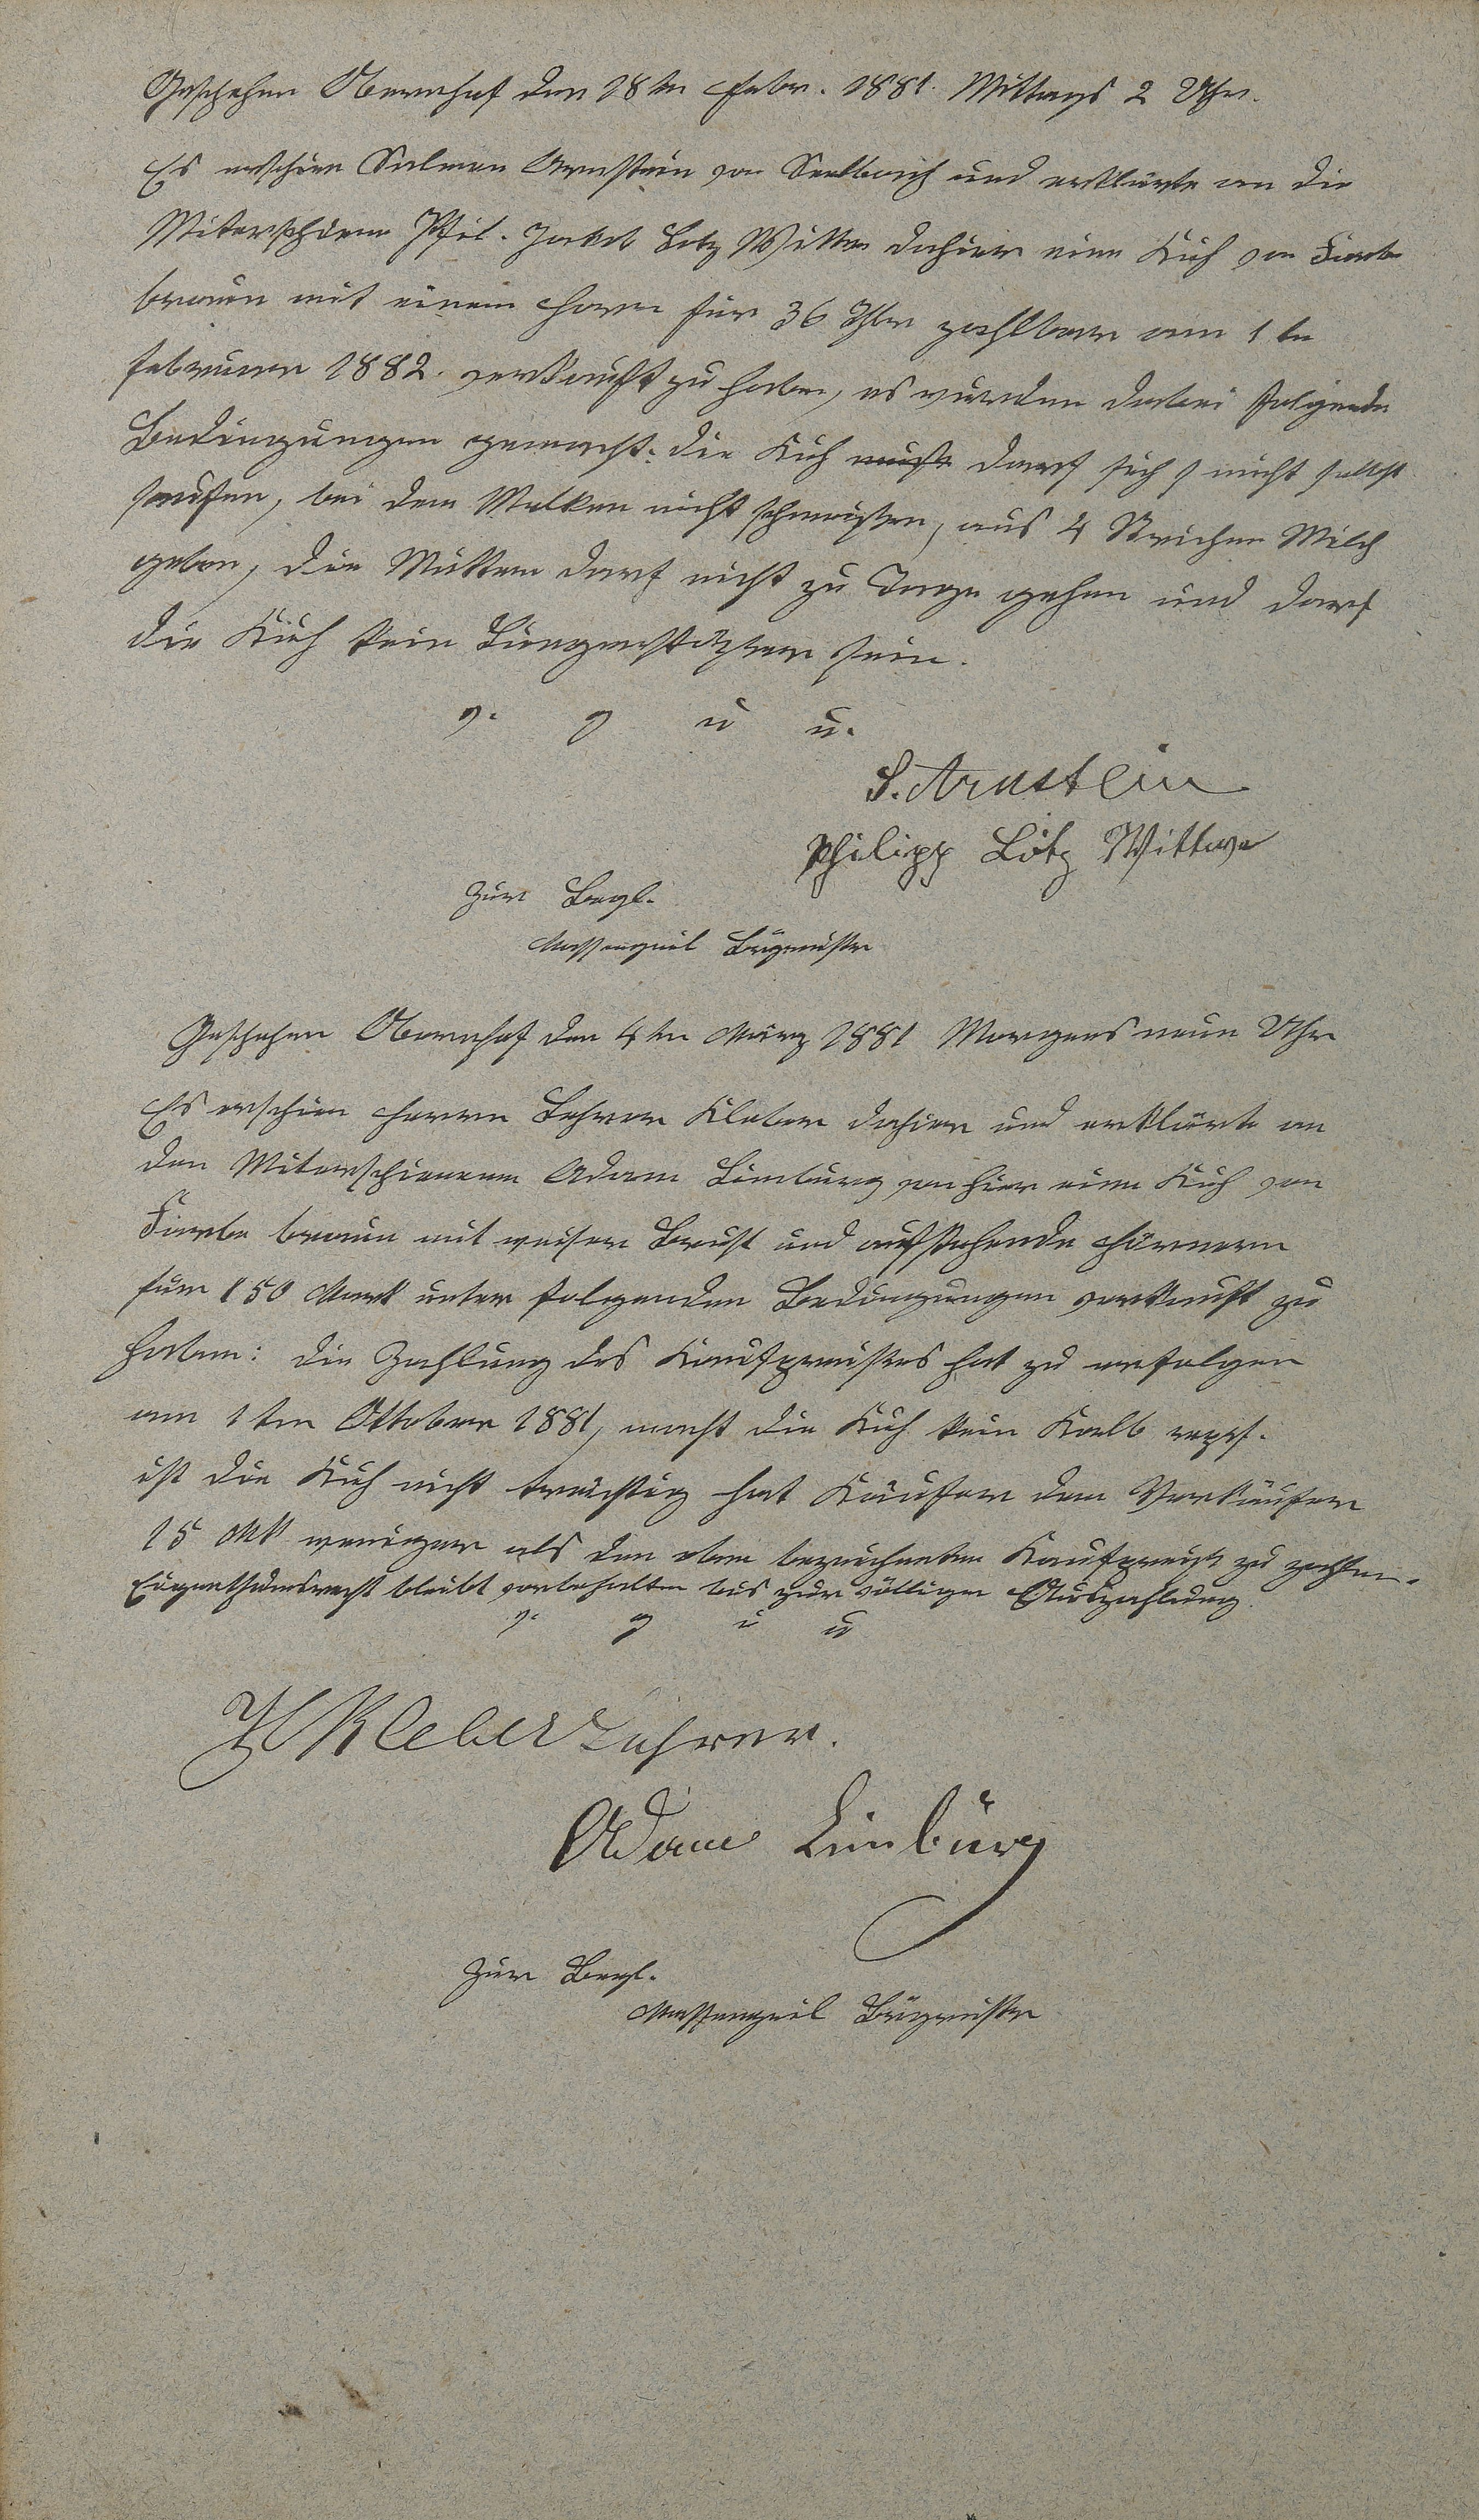 Geschehen Obernhof den 28ten Febr. 1881. Mittags 2 Uhr.
Es erschien Salmon Arnstein von Seelbach und erklärte an die
Miterschiene Phil. Jakob Lotz Wittwe dahier eine Kuh von Farbe
braun mit einem Horn für 36 Thlr zahlbar am 1ten
Februar 1882. verkauft zu haben, es wurden dabei folgende
Bedingungen gemacht: die Kuh muß darf sich s nicht selbst
saufen, bei dem Melken nicht schmeißen, aus 4 Strichen Milch
geben, die Mutter darf nicht zu Tage gehen und darf
die Kuh kein sein.
v. g u u.
S. Arnstein
Philipp Lotz Wittwe
Zur Begl.
Massengeil Bürgmeister
Geschehen Obernhof den 4ten März 1881 Morgens neun Uhr
Es erschien Herrn Lehrer Kleber dahier und erklärte an
den Miterschienenen Adam Limburg von hier eine Kuh von
Farbe braun mit weiser Brust und aufstehende Hörnern
für 150 Mark unter folgenden Bedingungen verkauft zu
haben: die Zahlung des Kaufpreises hat zu erfolgen
am 1ten Oktober 1881, macht die Kuh kein Kalb resp.
ist die Kuh nicht trächtig hat Käufer dem Verkäufer
15 Mk weniger als den oben bezeichneten Kaufpreis zu zahlen.
Eigenthumsrecht bleibt vorbehalten bis zur völligen Auszahlung.
v. g u u
H Kleber Lehrer.
Adam Limburg
Zur Begl.
Massengeil Bürgmeister